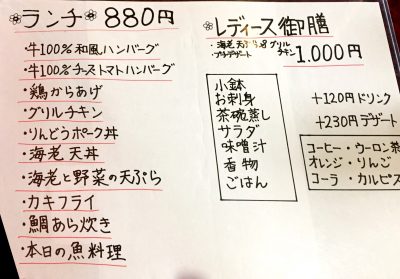 ランチ 880円
・牛100%和風ハンバーグ
・牛100%チーズトマトハンバーグ
・鶏からあげ
・グリルチキン
・りんどうポーク丼
・海老天丼
・海老と野菜の天ぷら
・カキフライ
・鯛あら炊き
・本日の魚料理
レディース御膳
・海老天ぷら&グリルチキン
・プチデザート
1.000円
小鉢
お刺身
茶碗蒸し
サラダ
味噌汁
香物
ごはん
+120円ドリンク
+230円デザート
コーヒー・ウーロン茶
オレンジ・りんご
コーラ・カルピス